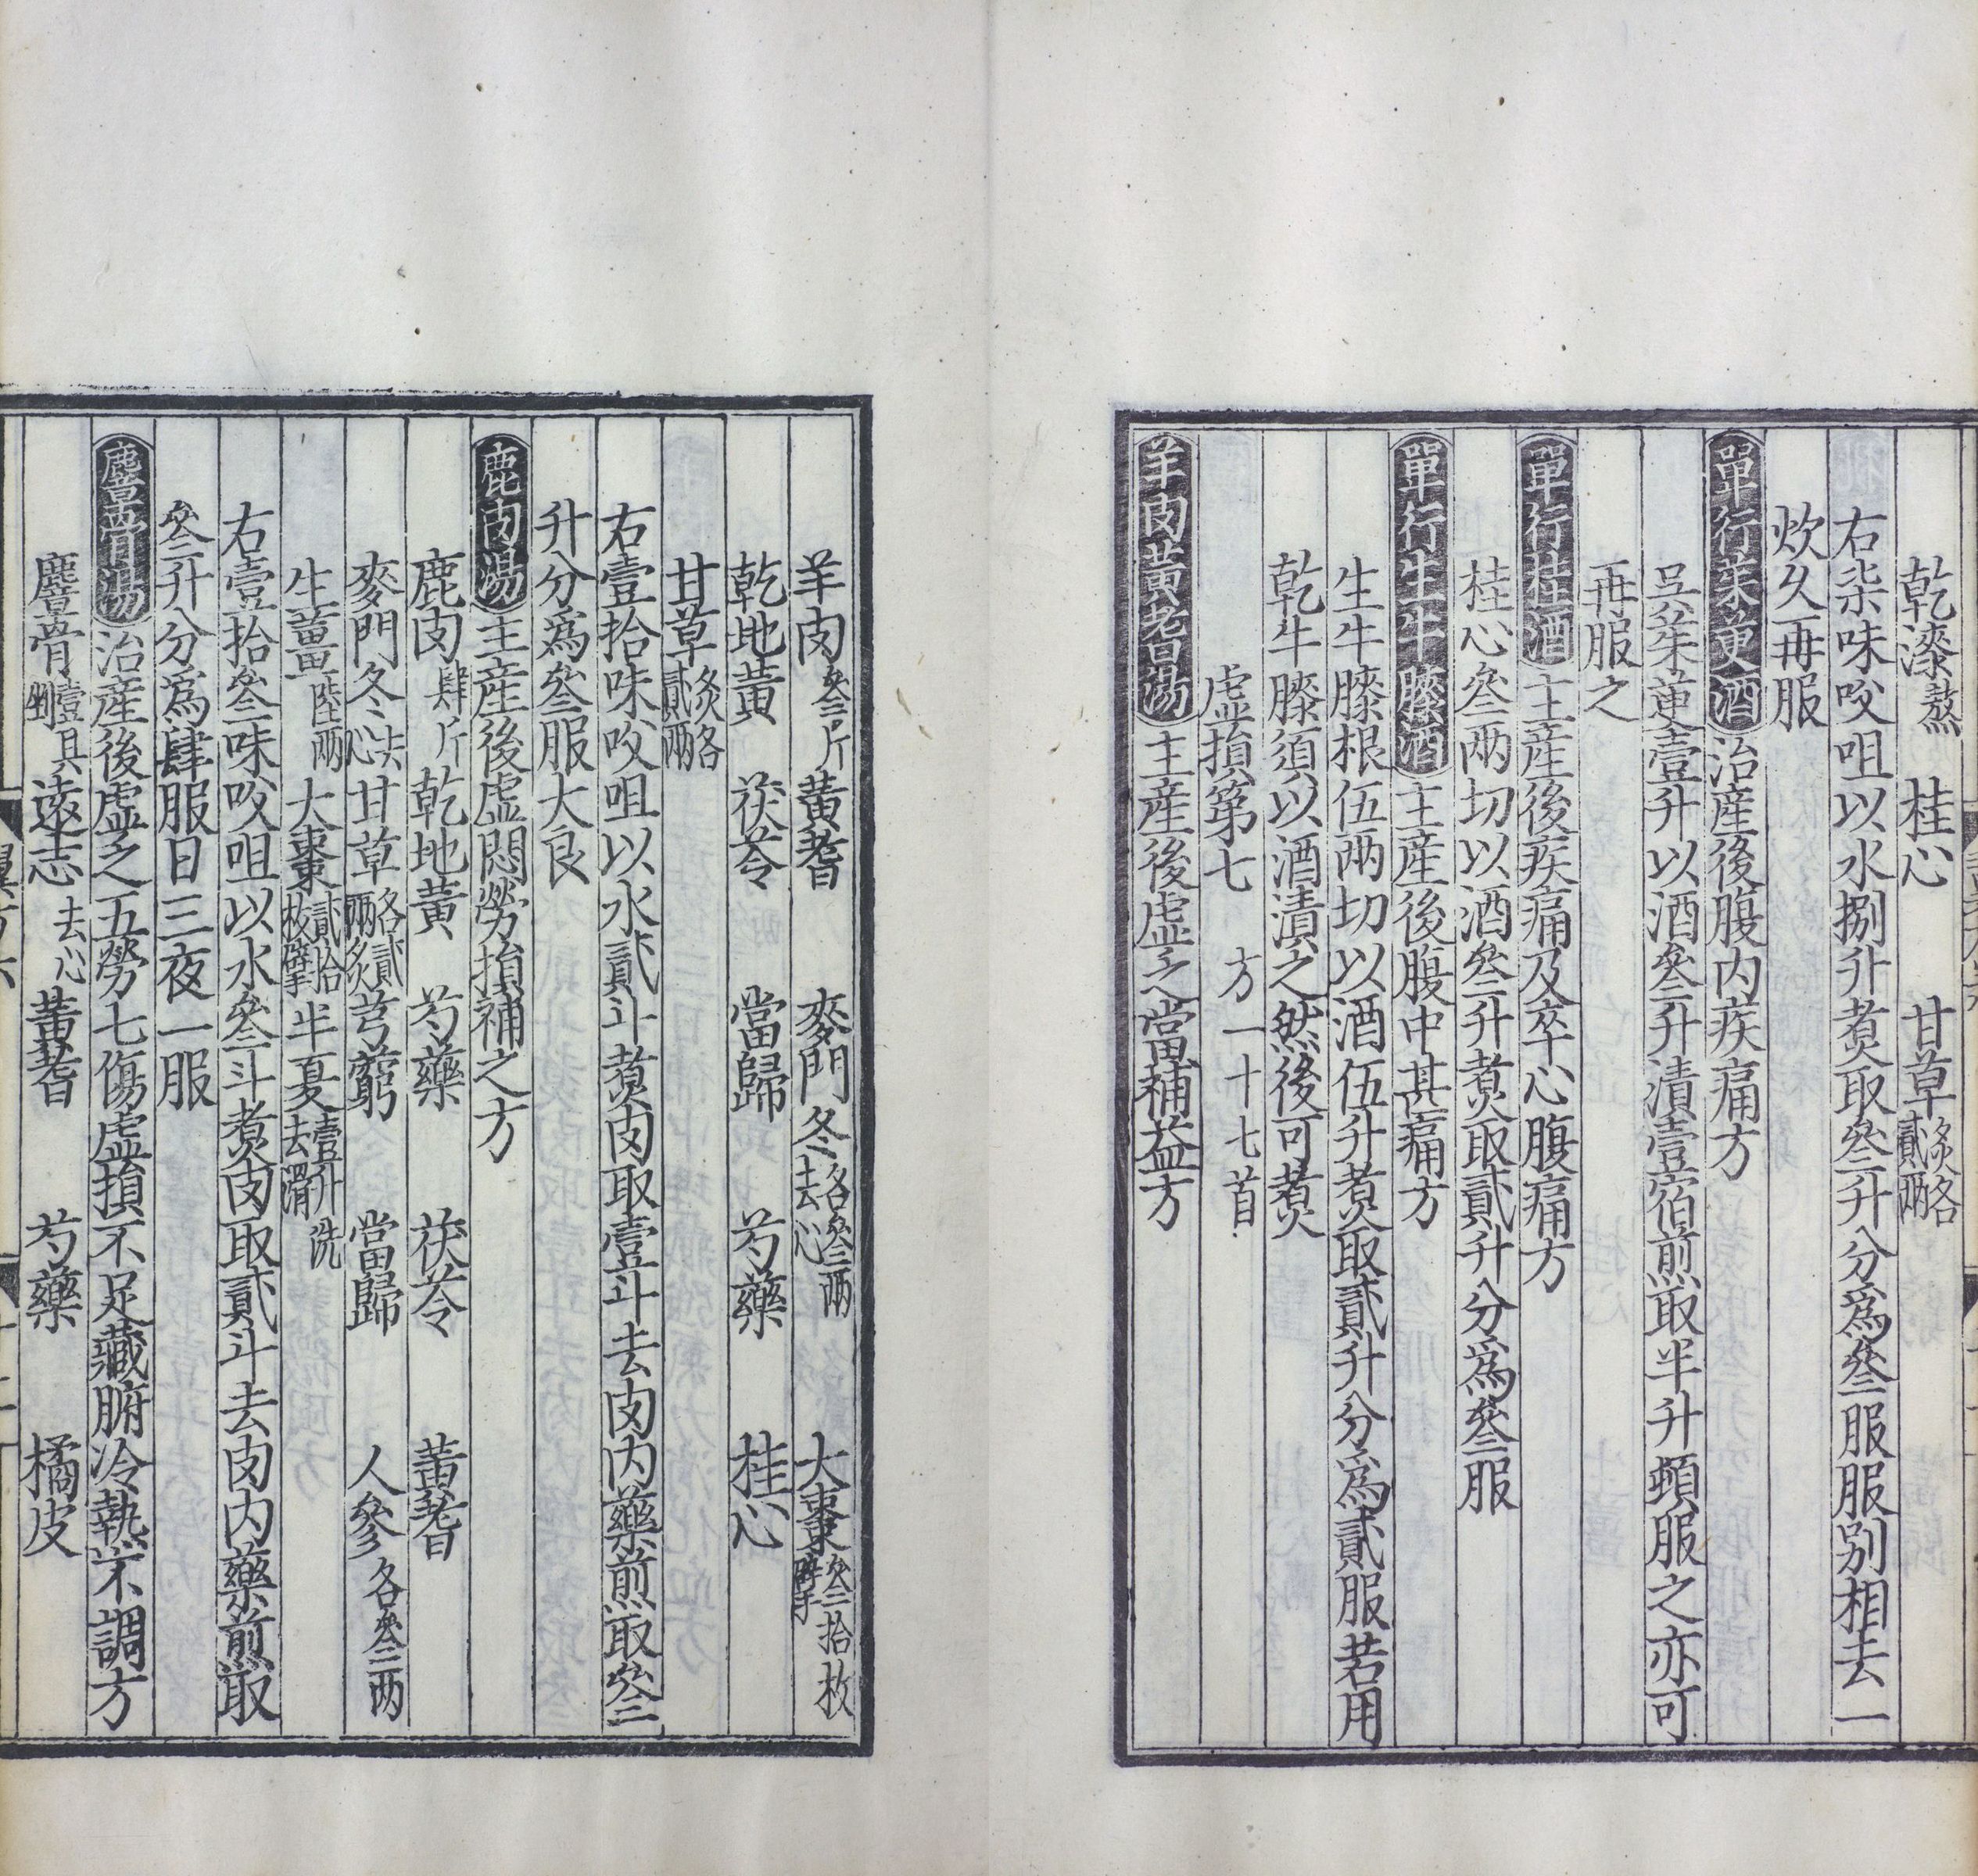 乾漆熬 桂心 甘草炙各貳兩
右柒味㕮咀以水捌升煑取叁升分爲叁服服别相去一
炊久再服
單行茱萸酒治產後腹内疾痛方
吳茱萸壹升以酒叁升漬壹宿煎取半升頓服之亦可
再服之
單行桂酒主產後疾痛及卒心腹痛方
桂心叁兩切以酒叁升煑取貳升分爲叁服
單行生牛膝酒主產後腹中甚痛方
生牛膝根伍兩切以酒伍升煑取貳升分爲貳服若用
乾牛膝須以酒漬之然後可煑
虛損第七 方一十七首
羊肉黃耆湯主產後虛乏當補益方
羊肉叁斤 黃耆 麥門冬各叁兩去心 大棗叁拾枚擘
乾地黃 茯苓 當歸 芍藥 桂心
甘草炙各貳兩
右壹拾味㕮咀以水貳斗煑肉取壹斗去肉内藥煎取叁
升分爲叁服大良
鹿肉湯主產後虛悶勞損補之方
鹿肉肆斤 乾地黃 芍藥 茯苓 黃耆
麥門冬去心 甘草各貳兩炙 芎藭 當歸 人參各叁兩
生薑陸兩 大棗貳拾枚擘 半夏壹升洗去滑
右壹拾叁味㕮咀以水叁斗煑肉取貳斗去肉内藥煎取
叁升分爲肆服日三夜一服
麞骨湯治產後虛乏五勞七傷虛損不足藏腑冷熱不調方
麞骨壹具剉 遠志去心 黃耆 芍藥 橘皮